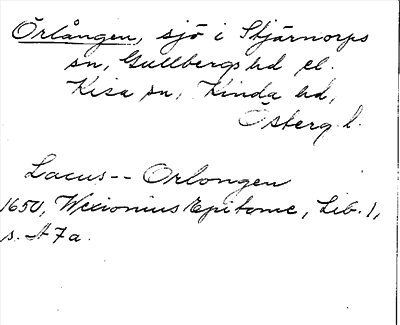 Örlången, sjö i Stjärnorps
sn, Gullbergs hd el.
Kisa sn, Kinda hd,
Österg. l.
Lacus -- Orlongen
1650, Wexionius Epitome, Lib. 1,
s. A 7 a.